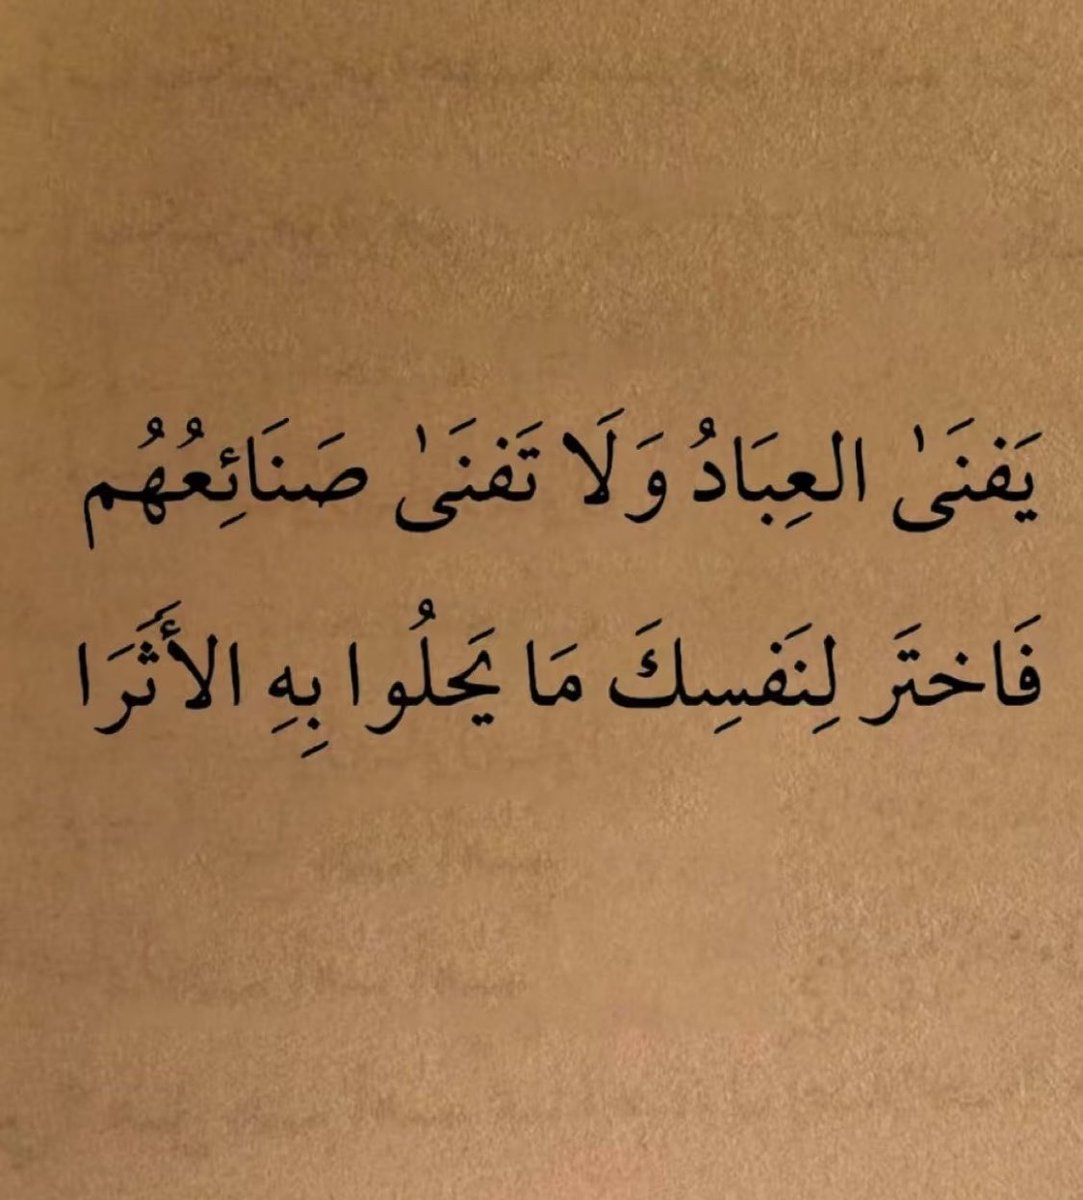 يَفنَىٰ العِبَادُ وَلَا تَفنَىٰ صَنَائِعُهُم
فَاختَر لِنَفسِكَ مَا يَحلُوا بِهِ الأَثَرَا